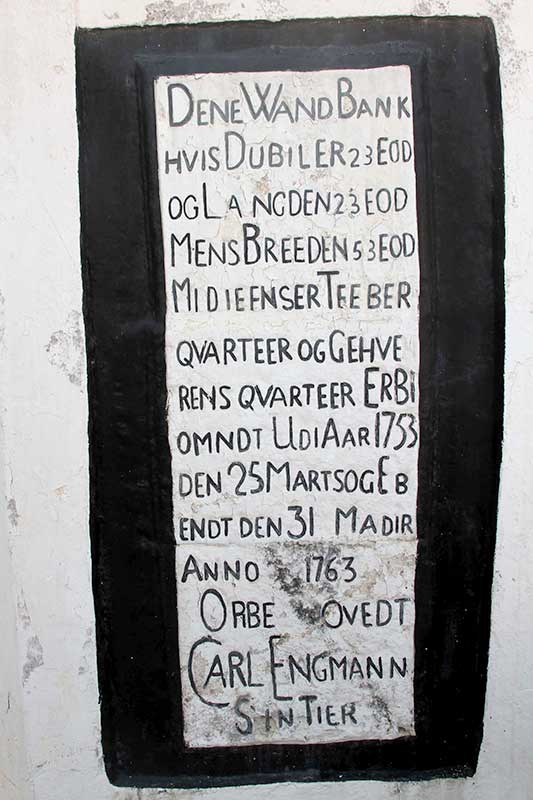 DENE WAND BANK
HVIS DUBILER 23 EOD
OG LANGDEN 23 EOD
MENS BREEDEN 53 EOD
MIDIEFNSER TFEBER
QVARTEER OG GEHVE
RENS QVARTEER ERBI
OMNDT UDI AAR 1753
DEN 25 MARTSOG EB
ENDT DEN 31 MADIR
ANNO 1763
ORBE OVEDT
CARL ENGMANN
SIN TIER